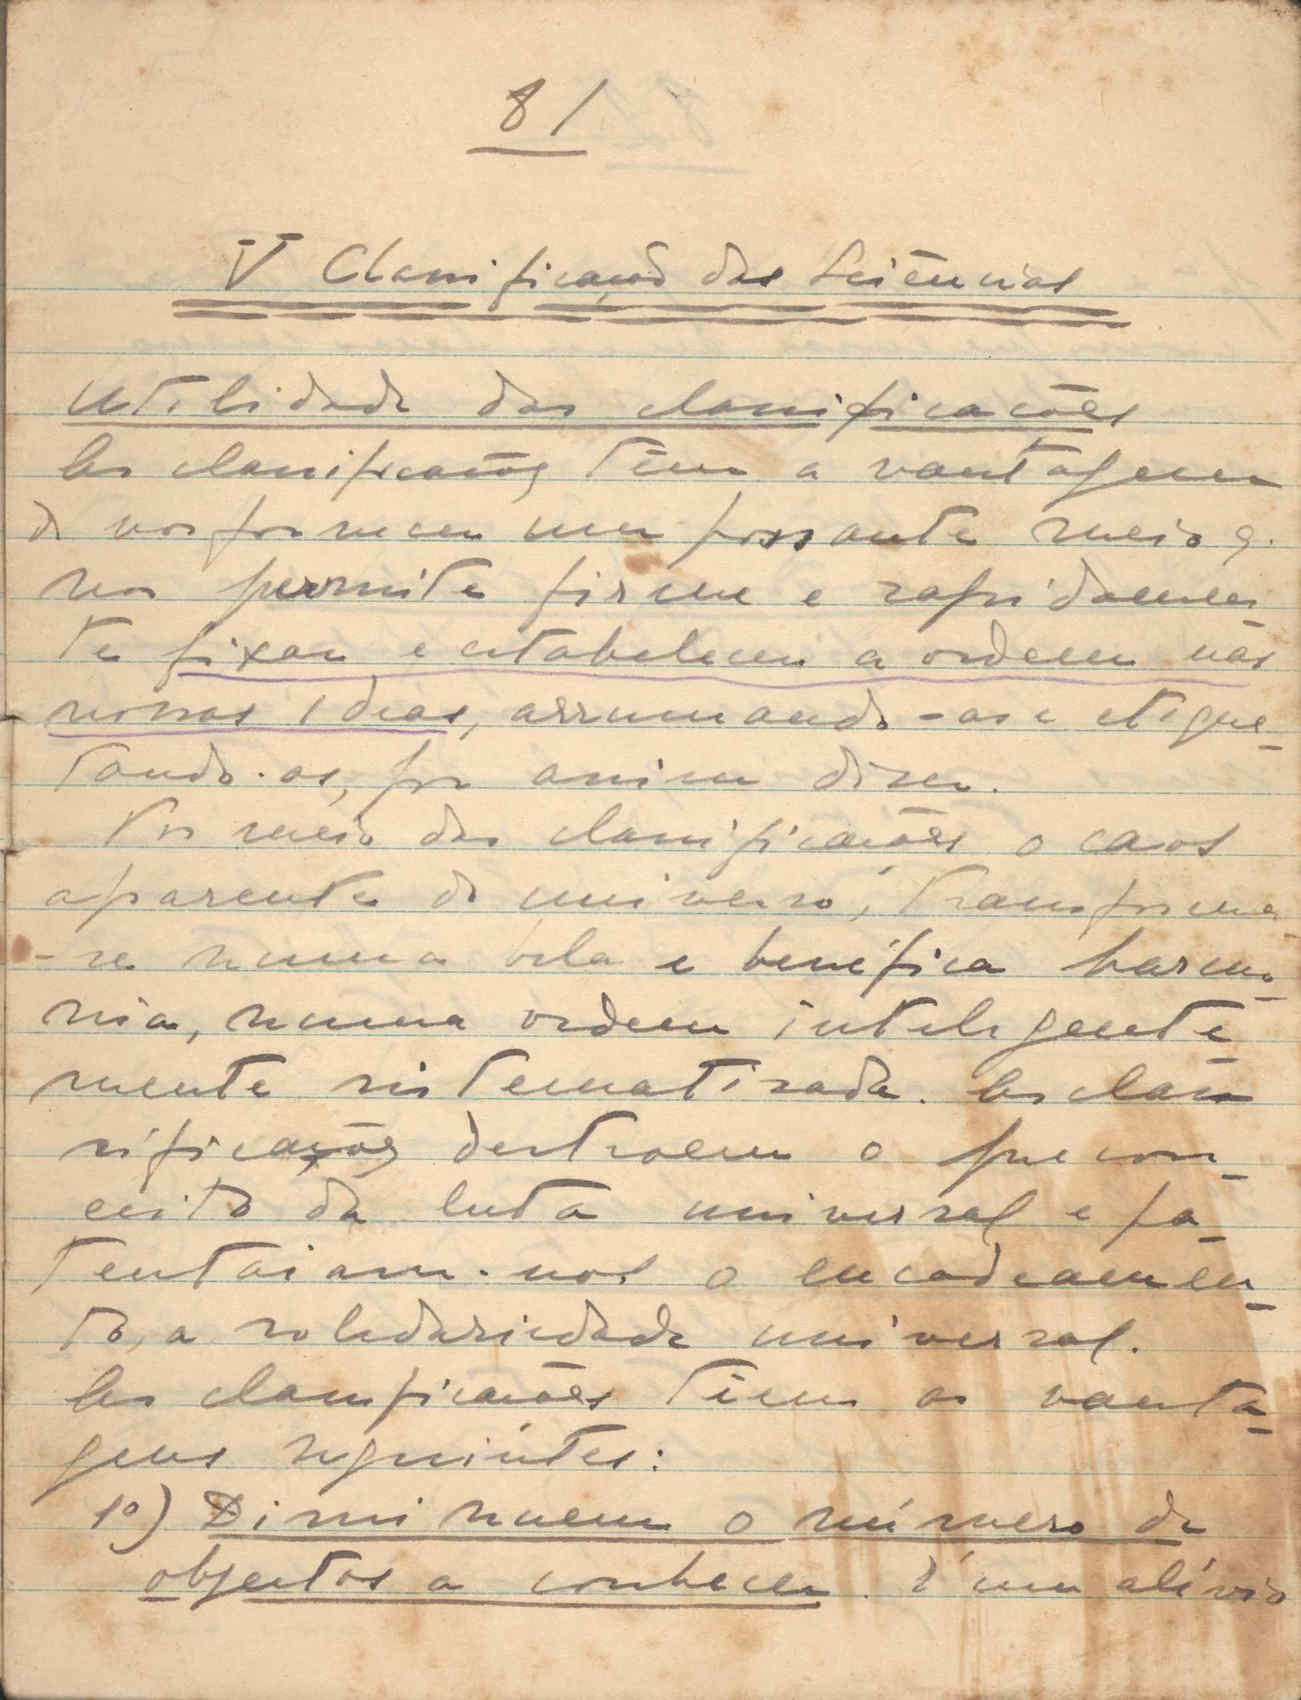 81
V Classificação das Sciências
Utilidade das classificações
As classificações têem a vantagem
de nos fornecer um possante meio q.
nos permite firme e rapidamen
te fixar e estabelecer a ordem nas
nossas ideas, arrumando-as e etique-
tando-as, por assim dizer.
Por meio das classificações o caos
aparente do universo, transforma-
-se numa bela e benéfica harmo-
nia, numa ordem inteligente
mente sistematizada. As clas
sificações destroem o precon-
ceito da luta universal e pa-
tenteiam-nos o encadeamen-
to, a solidariedade universal.
As classificações têem as vanta-
gens seguintes:
1º) Diminuem o número de
objectos a conhecer. É um alívio